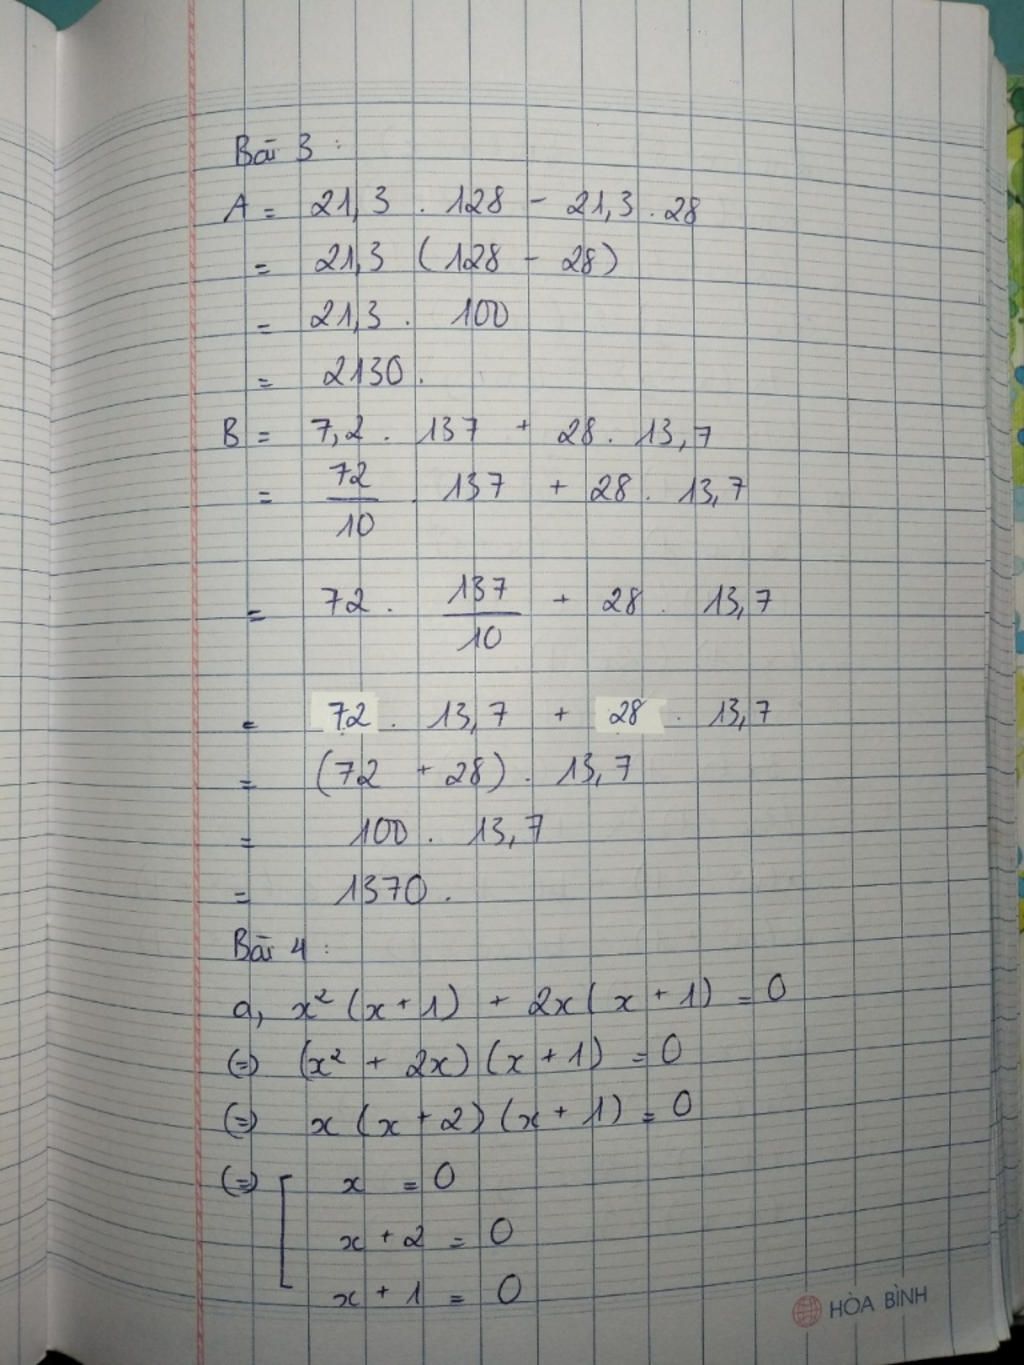 Bài 3 :
A = 21,3 . 128 - 21,3 . 28
= 21,3 (128 - 28)
= 21,3 . 100
= 2130.
B = 7,2 . 137 + 28 . 13,7
= 72/10 . 137 + 28 . 13,7
= 72 . 137/10 + 28 . 13,7
= 72 . 13,7 + 28 . 13,7
= (72 + 28) . 13,7
= 100 . 13,7
= 1370.
Bài 4 :
a, x² (x + 1) + 2x( x + 1) = 0
(=) (x² + 2x) (x + 1) = 0
(=) x (x + 2) (x + 1) = 0
(=) [ x = 0
x + 2 = 0
x + 1 = 0
HÒA BÌNH